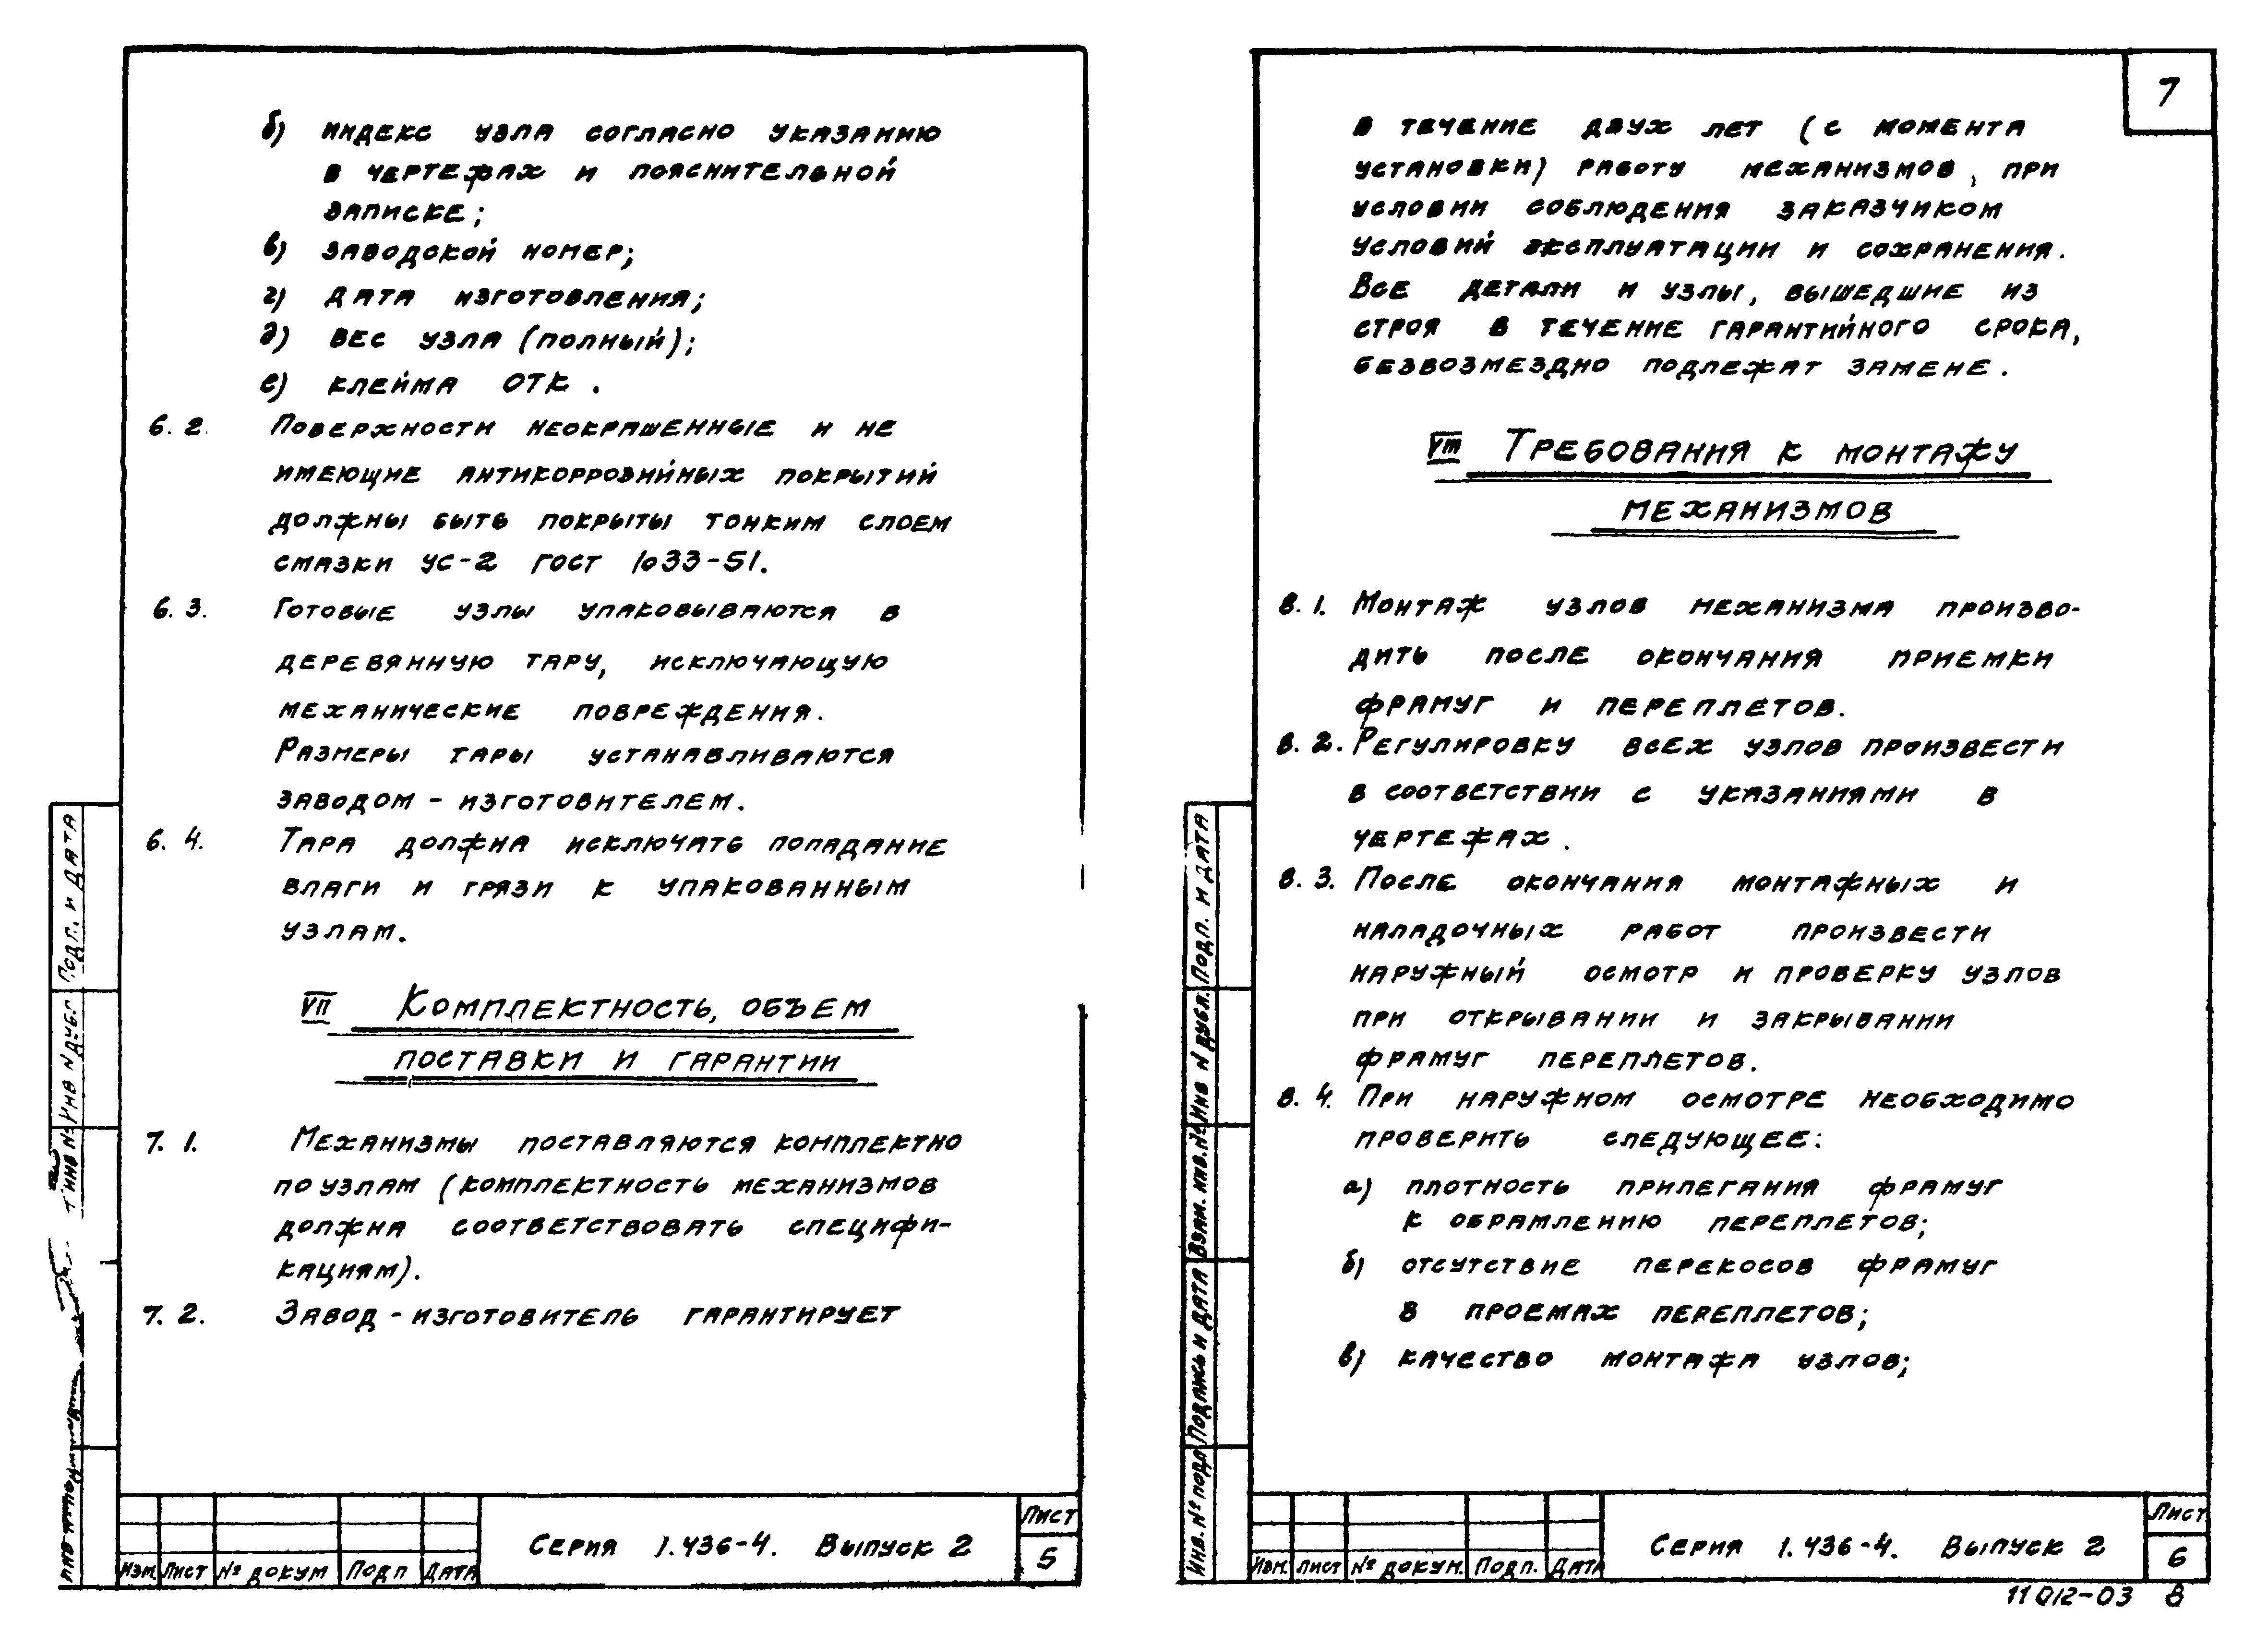 б) индекс узла согласно указанию
в чертежах и пояснительной
записке;
в) заводской номер;
г) дата изготовления;
д) вес узла (полный);
е) клейма ОТК.
6.2. Поверхности неокрашенные и не
имеющие антикоррозийных покрытий
должны быть покрыты тонким слоем
смазки УС-2 ГОСТ 1033-51.
6.3. Готовые узлы упаковываются в
деревянную тару, исключающую
механические повреждения.
Размеры тары устанавливаются
заводом-изготовителем.
6.4. Тара должна исключать попадание
влаги и грязи к упакованным
узлам.
VII Комплектность, объем
поставки и гарантии
7.1. Механизмы поставляются комплектно
по узлам (комплектность механизмов
должна соответствовать специфи-
кациям).
7.2. Завод-изготовитель гарантирует
Подп. и дата
Инв N дубл
Изм. Лист № докум Подп Дата
Серия 1.436-4. Выпуск 2
Лист
5
7
в течение двух лет (с момента
установки) работу механизмов, при
условии соблюдения заказчиком
условий эксплуатации и сохранения.
Все детали и узлы, вышедшие из
строя в течение гарантийного срока,
безвозмездно подлежат замене.
VIII Требования к монтажу
механизмов
8.1. Монтаж узлов механизма произво-
дить после окончания приемки
фрамуг и переплетов.
8.2. Регулировку всех узлов произвести
в соответствии с указаниями в
чертежах.
8.3. После окончания монтажных и
наладочных работ произвести
наружный осмотр и проверку узлов
при открывании и закрывании
фрамуг переплетов.
8.4. При наружном осмотре необходимо
проверить следующее:
а) плотность прилегания фрамуг
к обрамлению переплетов;
б) отсутствие перекосов фрамуг
в проемах переплетов;
в) качество монтажа узлов;
Подп. и дата
Инв N дубл.
Взам. инв. №
Подпись и дата
Инв. № подл
Изм. Лист № докум. Подп. Дата
Серия 1.436-4. Выпуск 2
Лист
6
11012-03 8